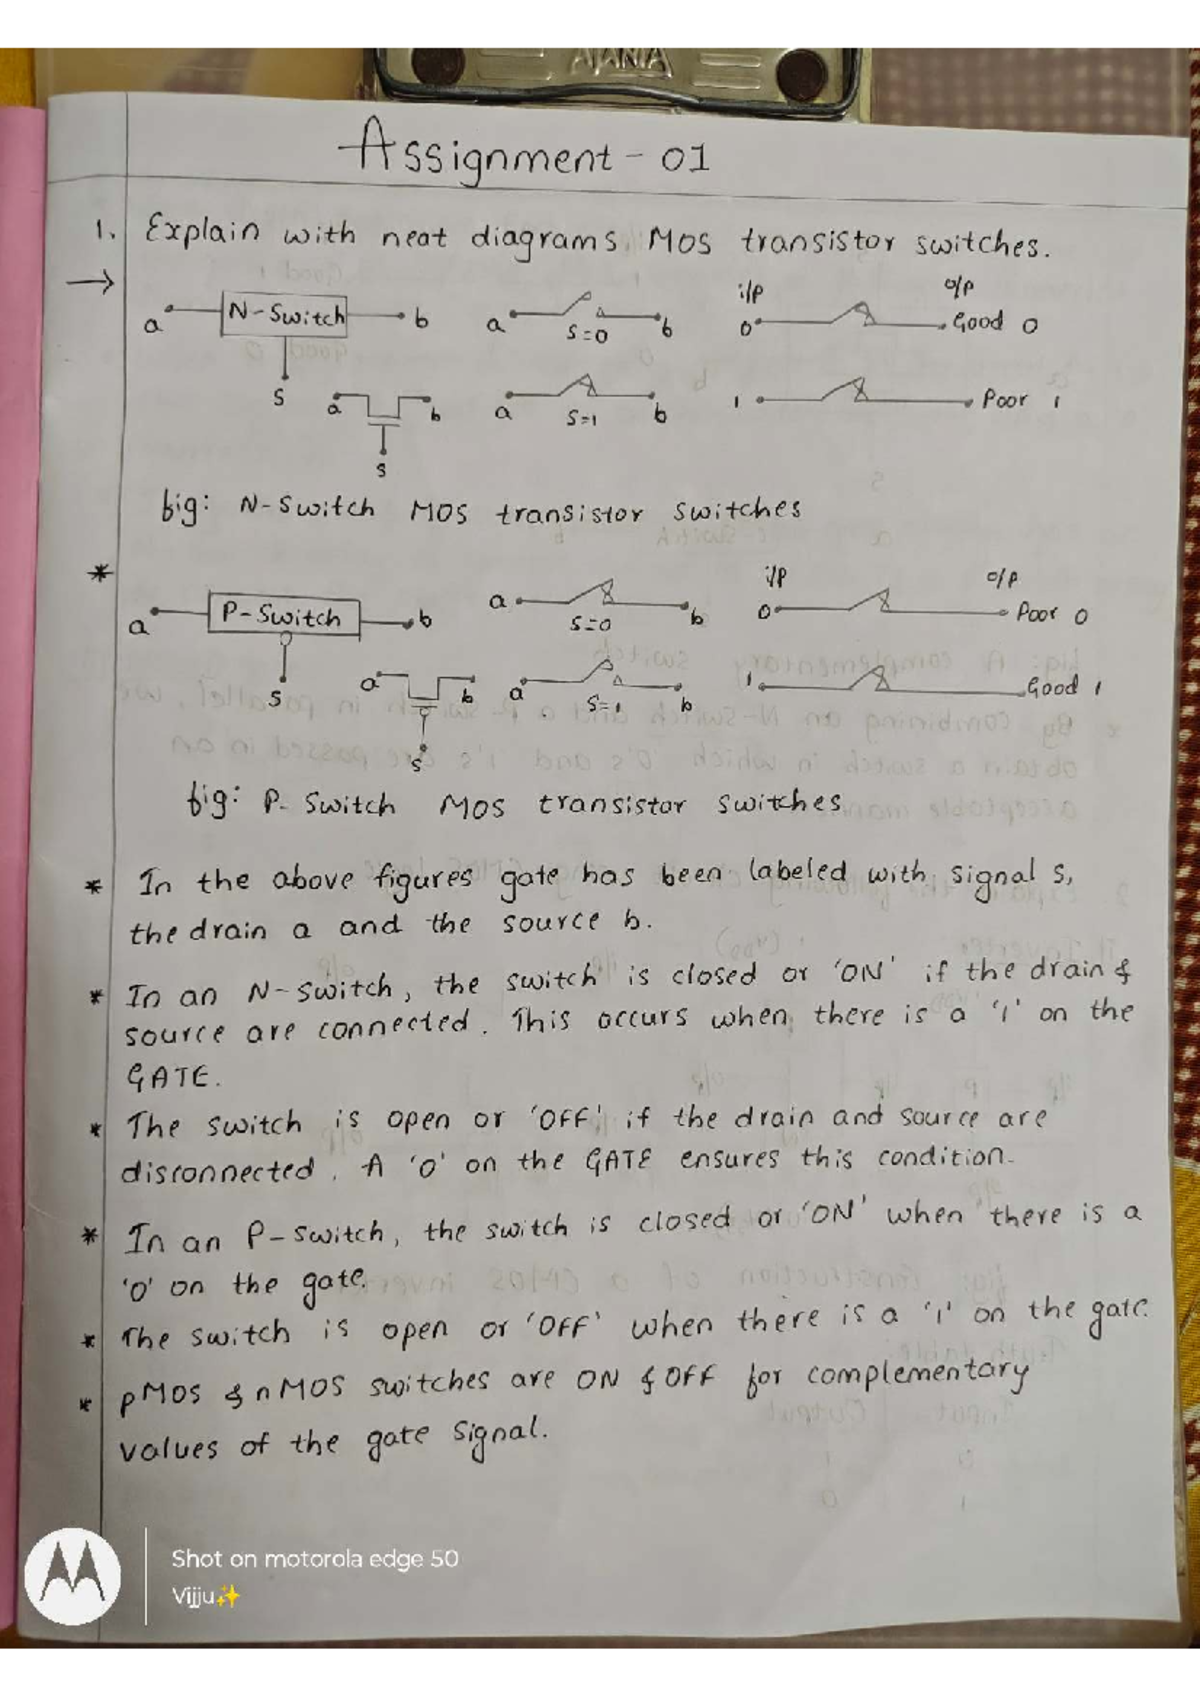 AJANTA
Assignment - 01
1. Explain with neat diagrams MOS transistor switches.
→
a N-Switch b
S
a b
S
a S=0 b
a S=1 b
i/p o/p
0 Good 0
1 Poor 1
fig: N-Switch MOS transistor switches
*
a P-Switch b
S
a b
S
a S=0 b
a S=1 b
i/p o/p
0 Poor 0
1 Good 1
fig: P- Switch MOS transistor switches
* In the above figures gate has been labeled with signal s,
the drain a and the source b.
* In an N-switch, the switch is closed or 'ON' if the drain &
source are connected. This occurs when there is a '1' on the
GATE.
* The switch is open or 'OFF' if the drain and source are
disconnected. A '0' on the GATE ensures this condition.
* In an P-switch, the switch is closed or 'ON' when there is a
'0' on the gate.
* The switch is open or 'OFF' when there is a '1' on the gate.
* pMOS & nMOS switches are ON & OFF for complementary
values of the gate signal.
Shot on motorola edge 50
Vijju✨